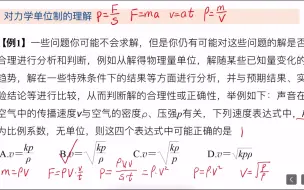 对力学单位制的理解 P=F/S F=ma v=at ρ=m/V
【例1】一些问题你可能不会求解，但是你仍有可能对这些问题的解是否
合理进行分析和判断，例如从解得物理量单位，解随某些已知量变化的
趋势，解在一些特殊条件下的结果等方面进行分析，并与预期结果、实
验结论等进行比较，从而判断解的合理性或正确性，举例如下：声音在
空气中的传播速度v与空气的密度ρ、压强p有关，下列速度表达式中，k
为比例系数，无单位，则这四个表达式中可能正确的是
A.v=kp/ρ B.v=√(kp/ρ) C.v=√(kρ/p) D.v=√(kpρ)
m=ρV F=ρV·v/t P=ρVv/St=ρ·v² P=ρv² v=√(P/ρ)